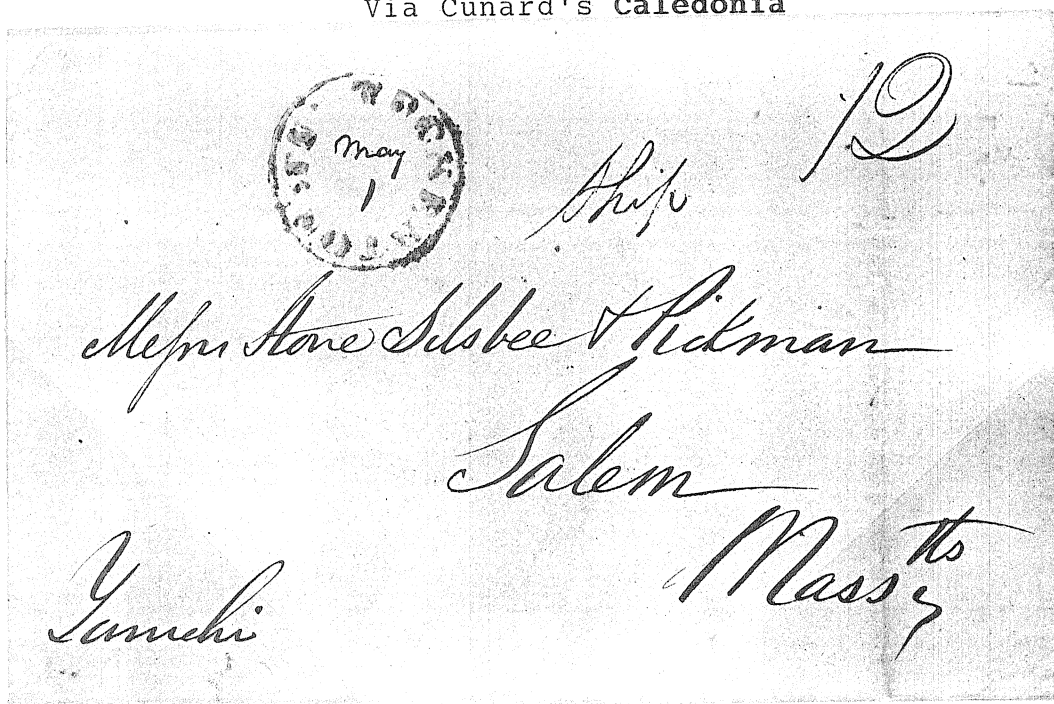 Via Cunard's Caledonia
May
1
Ship
12
Messrs Stone Silsbee & Pickman
Salem
Masstts